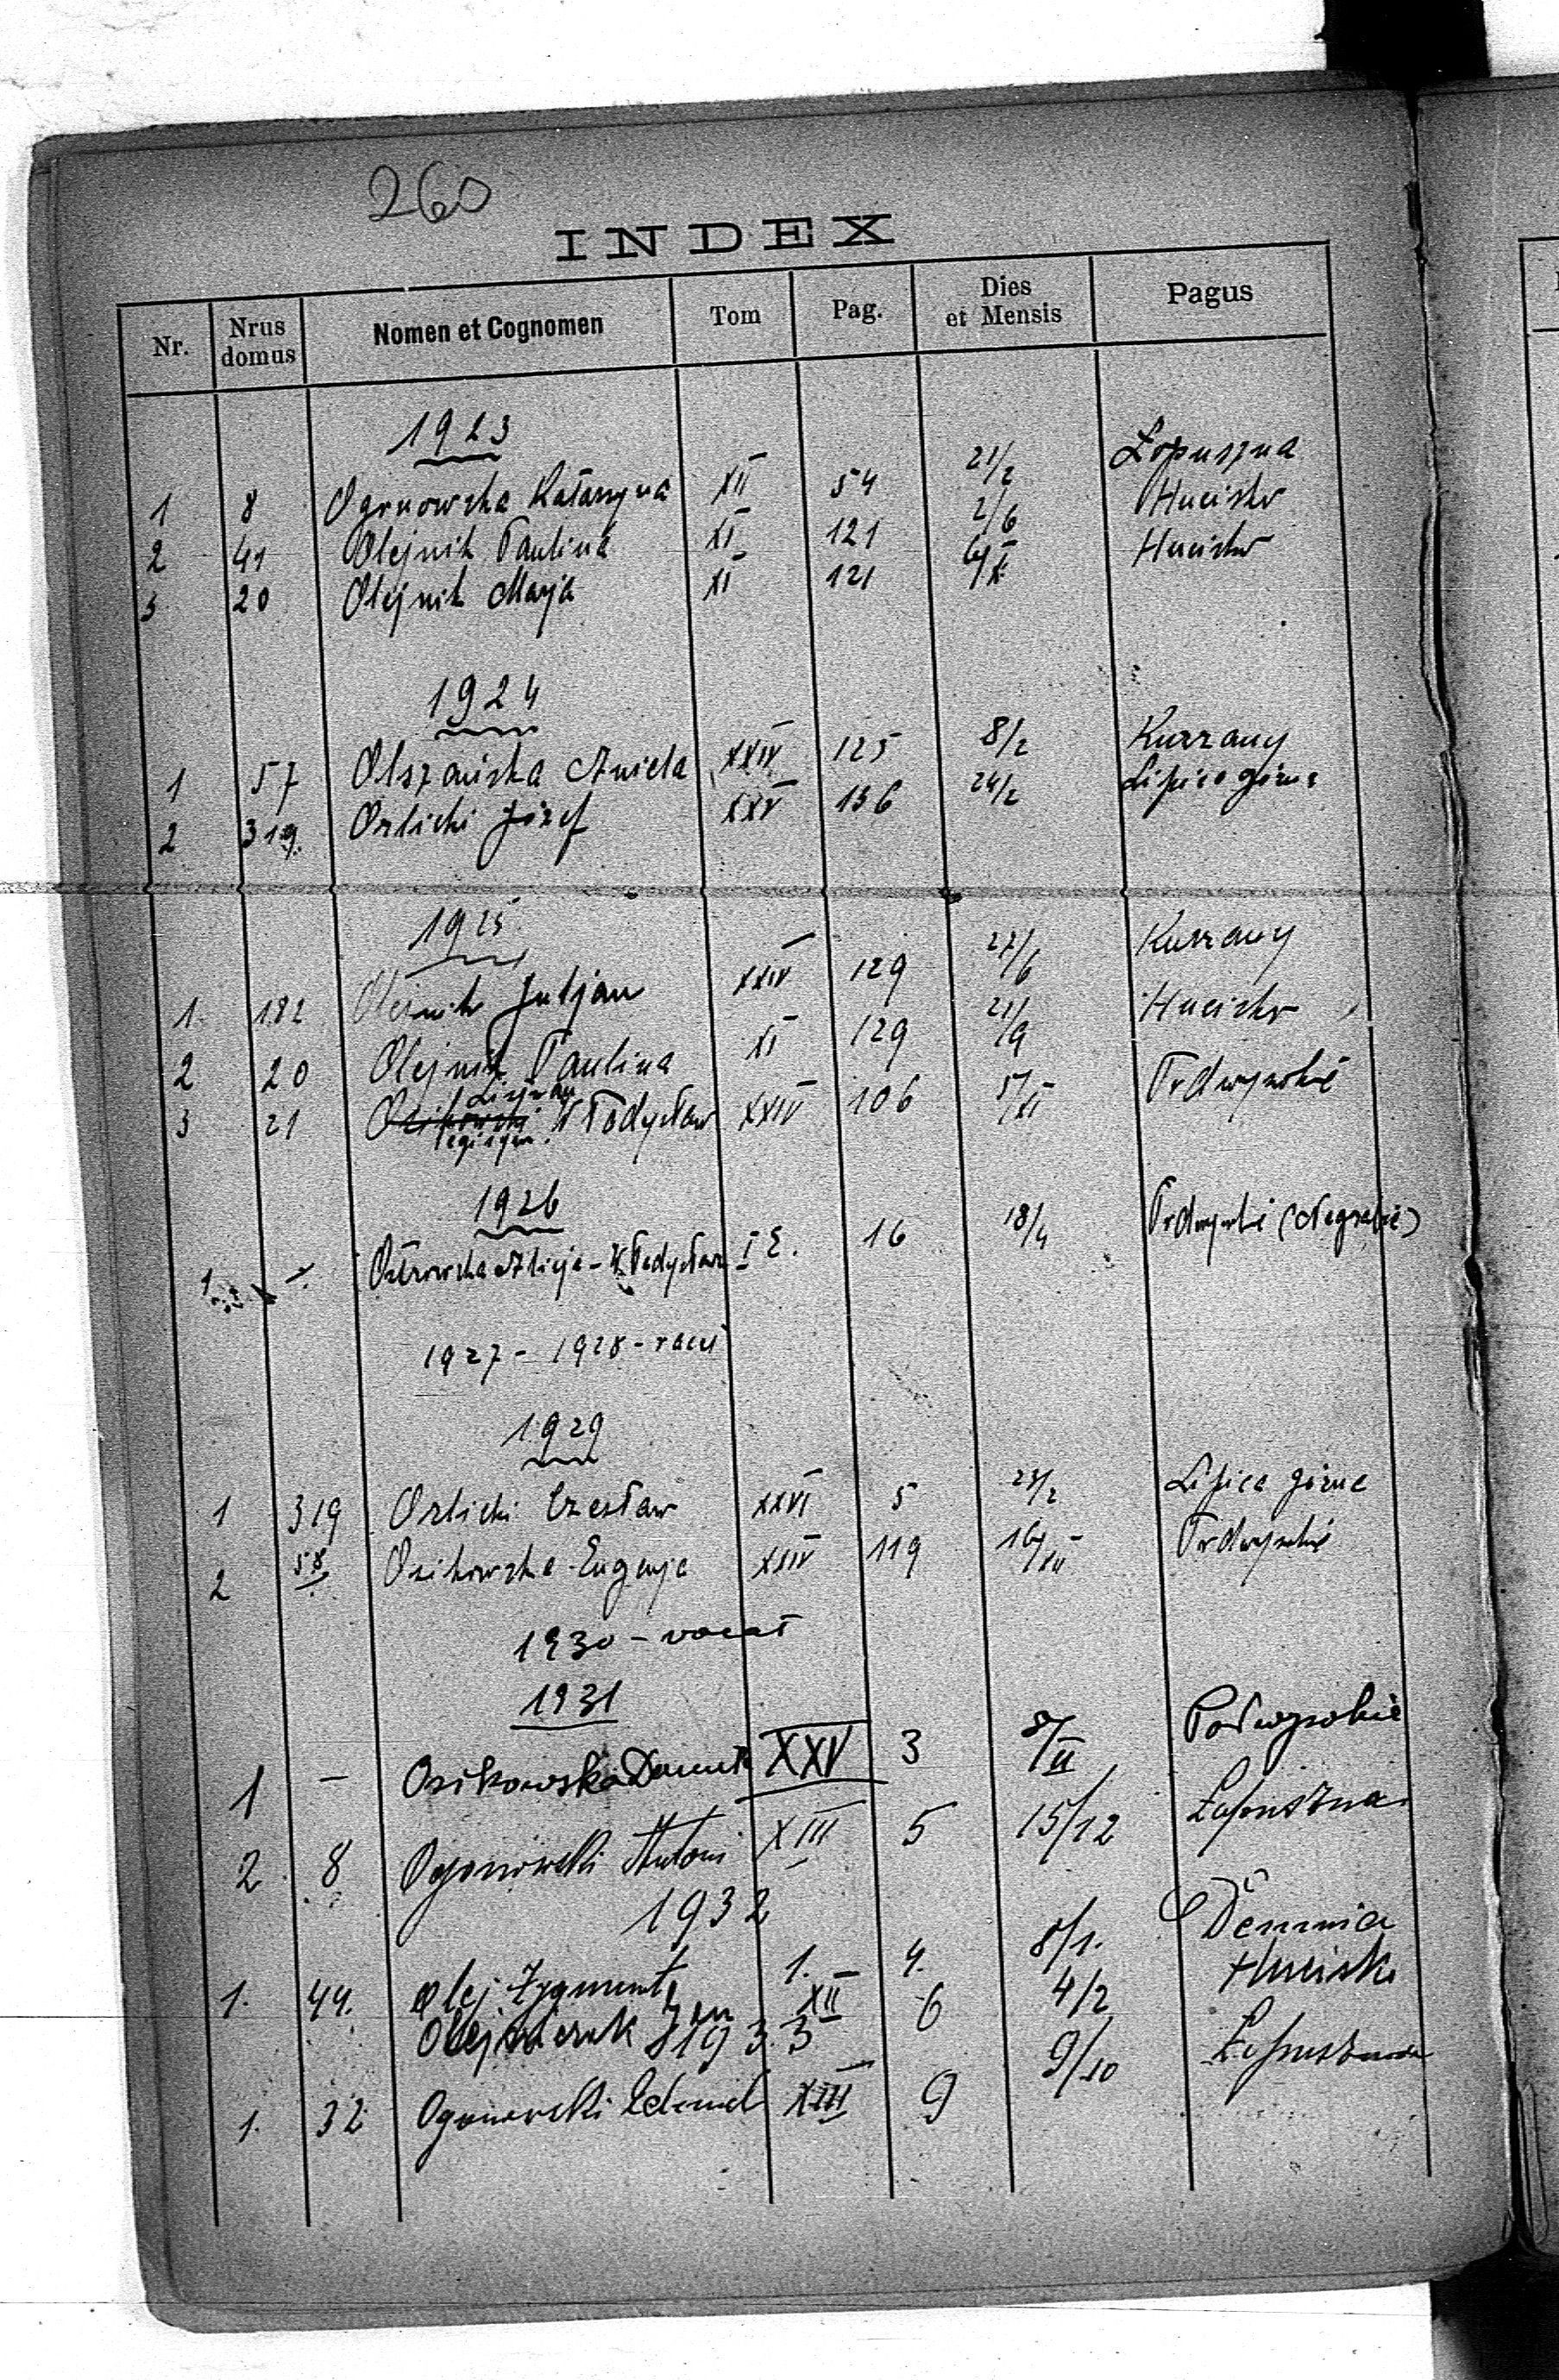 260
INDEX
Nr. Nrus domus Nomen et Cognomen Tom Pag. Dies et Mensis Pagus
1923
1 8 Ogonowska Katarzyna XII 54 21/2 Łopuszna
2 41 Olejnik Paulina XI 121 2/6 Hucisko
3 20 Olejnik Marja XI 121 Hucisko
1924
1 57 Olszańska Aniela XXIV 125 8/2 Kurzany
2 319. Orlicki Józef XXV 136 24/2 Lipica górna
1925
1. 182 Olejnik Juljan XXIV 129 27/6 Kurzany
2 20 Olejnik Paulina XI 129 21/9 Hucisko
3 21 Osikowski Władysław XXIV 106 5/XI Podwysokie
1926
1 – Ostrowska Alicja - Władysława I E. 16 18/4 Podwysokie
1927 - 1928 - vacat
1929
1 319 Orlicki Czesław XXVI 5 23/2 Lipica górna
2 58 Osikowska Eugenja XXIV 119 16/XII Podwysokie
1930 - vacat
1931
1 – Osikowska Danuta XXV 3 8/II Podwysokie
2 8 Ogonowski Antoni XIII 5 15/12 Łopuszna
1932
1. 44. Olej Zygmunt 1. 4. 8/1. Demnia
Olejniczak Jan XII 6 4/2 Hucisko
1933
1. 32 Ogonowski Edmund XIII 9 9/10 Łopuszna